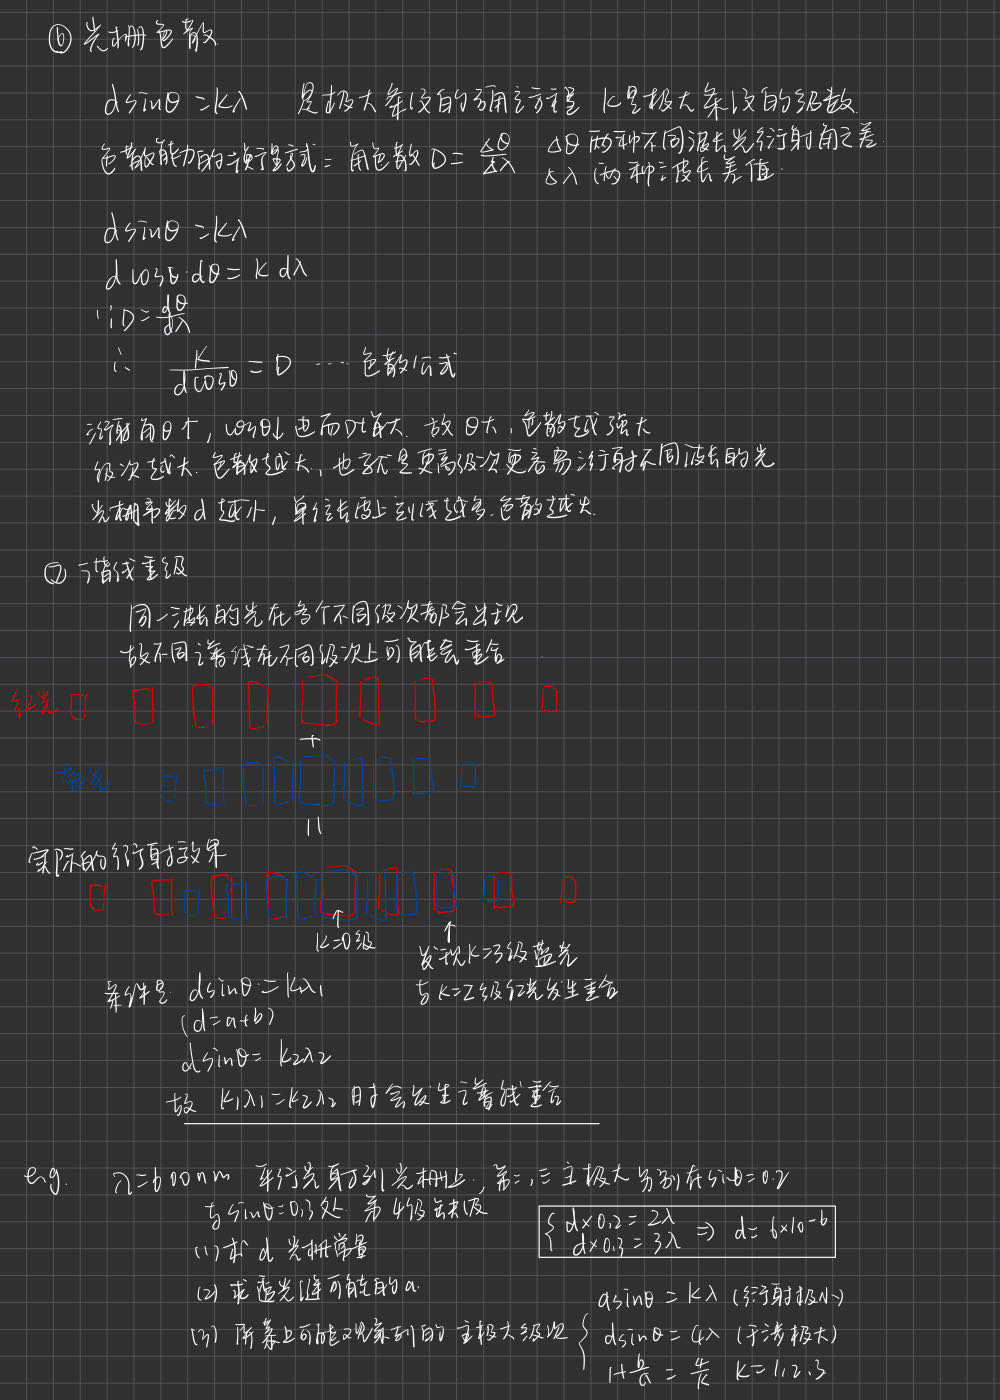 ⑥ 光栅色散
dsinθ=kλ 是极大条纹的角方程 K是极大条纹的级数
色散能力的衡量方式=角色散 D=Δθ/Δλ Δθ 两种不同波长光衍射角之差.
Δλ 两种波长差值.
dsinθ=kλ
dcosθ·dθ=k dλ
∵D=dθ/dλ
∴ K/dcosθ=D ……色散公式
衍射角θ↑, cosθ↓ 也而D增大. 故θ大,色散越强大
级次越大.色散越大,也就是更高级次更容易衍射不同波长的光
光栅常数d越小,单位长度上刻线越多.色散越大.
⑦ 谱线重级
同一波长的光在各个不同级次都会出现
故不同谱线在不同级次上可能会重合
红光
+
蓝光
=
实际的衍射效果
↑ K=0级
↑ 发现K=3级蓝光
与K=2级红光发生重合
条件是 dsinθ=Kλ₁
(d=a+b)
dsinθ=k₂λ₂
故 K₁λ₁=K₂λ₂ 时会发生谱线重合
e.g. λ=600nm 平行光射到光栅上,第二,三主极大分别在sinθ=0.2
与sinθ=0.3处 第4级缺级
{ d×0.2=2λ
d×0.3=3λ ⇒ d=6×10⁻⁶
(1) 求d光栅常量
(2) 求透光缝可能的a.
asinθ=Kλ (衍射极小)
(3) 屏幕上可能观察到的主极大级次 { dsinθ=4λ (干涉极大)
1+b/a=4/k K=1,2,3